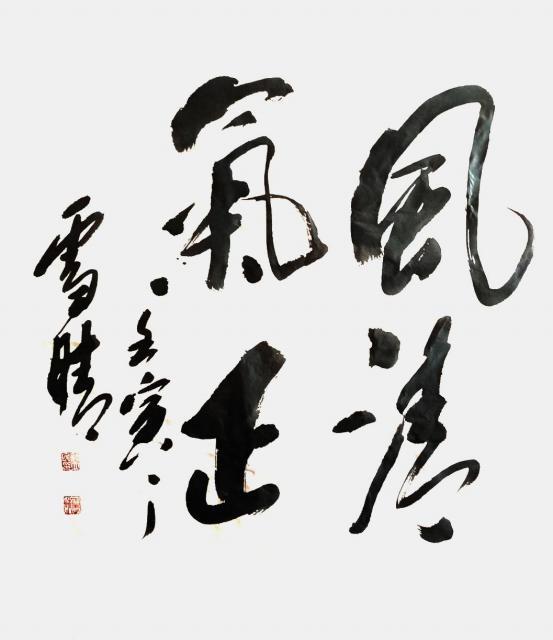 風清
氣正
壬寅
雪晴